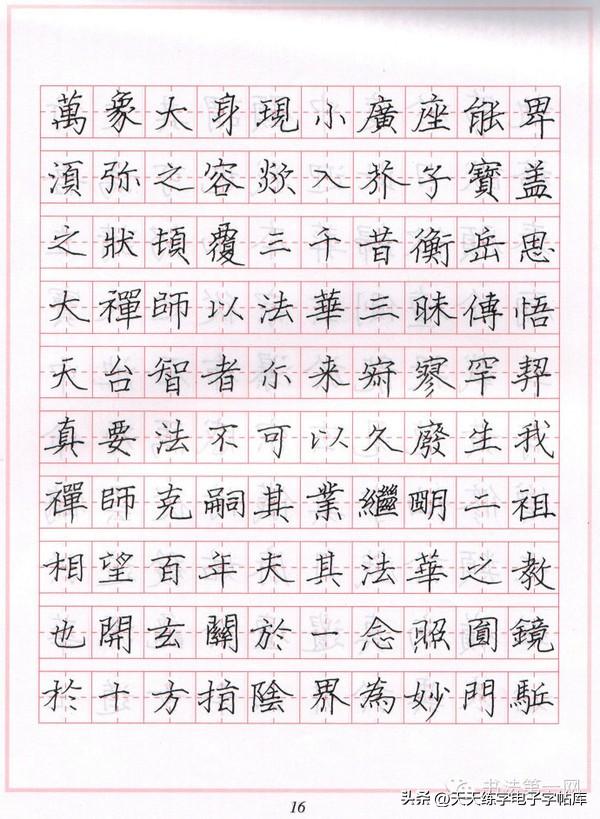 萬象大身現小廣座能卑
湏弥之容欻入芥子寳盖
之狀頓覆三千昔衡岳思
大禪師以法華三昧傳悟
天台智者尓来寂寥罕契
真要法不可以久廢生我
禪師克嗣其業繼明二祖
相望百年夫其法華之教
也開玄關於一念照圎鏡
於十方指陰界為妙門駈
16
书法第一网
头条 @天天练字电子字帖库